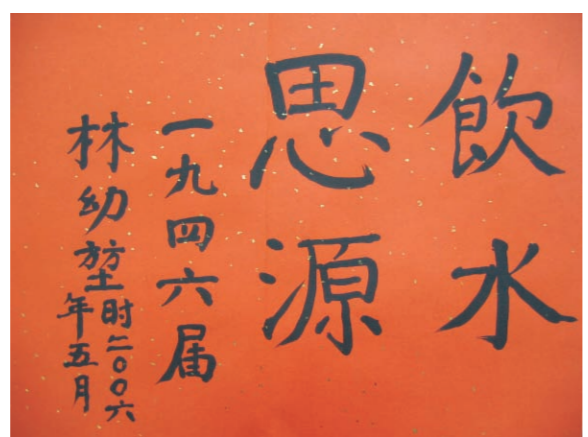 飲水
思源
一九四六届
林幼堃时二〇〇六
年五月